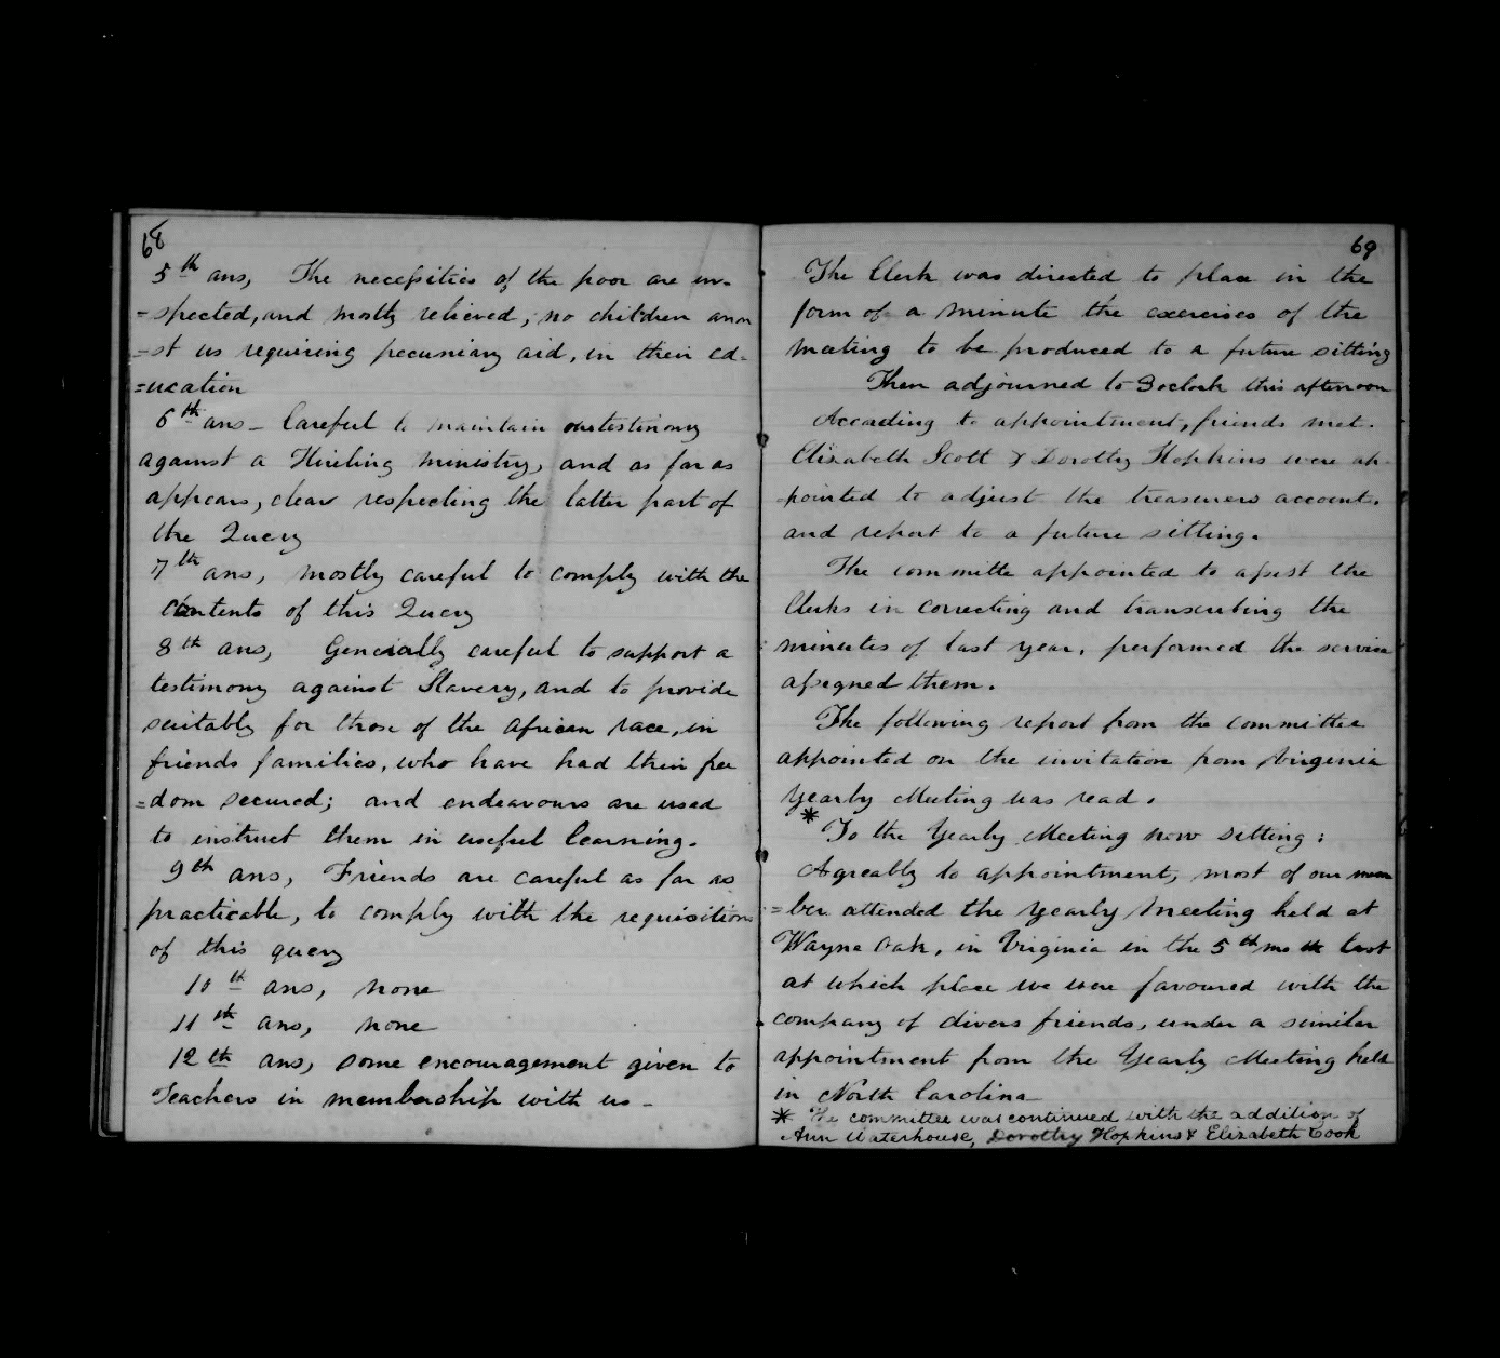 68
5th ans, The necessities of the poor are in-
=spected, and mostly relieved; no children amon
=st us requiring pecuniary aid, in their ed-
=ucation
6th ans - Careful to maintain our testimony
against a Hireling ministry, and as far as
appears, clear respecting the latter part of
the Query
7th ans, mostly careful to comply with the
contents of this Query
8th ans, Generally careful to support a
testimony against Slavery, and to provide
suitably for those of the african race, in
friends families, who have had their free
=dom secured; and endeavours are used
to instruct them in useful learning.
9th ans, Friends are careful as far as
practicable, to comply with the requisitions
of this query
10th ans, none
11th ans, none
12th ans, some encouragement given to
Teachers in membership with us -
69
The Clerk was directed to place in the
form of a minute the exercises of the
meeting to be produced to a future sitting
Then adjourned to 3 oclock this afternoon
According to appointment, friends met.
Elizabeth Scott & Dorothy Hopkins were ap-
-pointed to adjust the treasurers account.
and report to a future sitting.
The committe appointed to assist the
Clerks in correcting and transcribing the
minutes of last year, performed the service
assigned them.
The following report from the committee
appointed on the invitation from Virginia
Yearly Meeting was read.
* To the Yearly Meeting now sitting:
Agreably to appointment, most of our mem
=ber attended the Yearly Meeting held at
Wayne Oak, in Virginia in the 5th mo last
at which place we were favoured with the
company of divers friends, under a similar
appointment from the Yearly Meeting held
in North Carolina
* The committee was continued with the addition of
Ann Waterhouse, Dorothy Hopkins & Elizabeth Cook